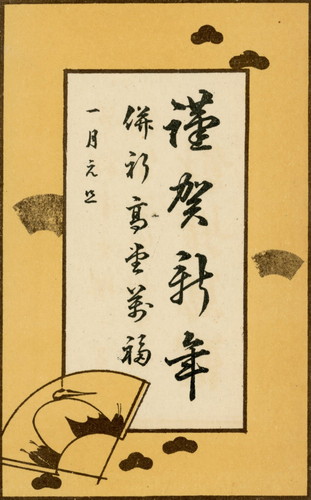 謹賀新年
併祈高堂萬福
一月元旦